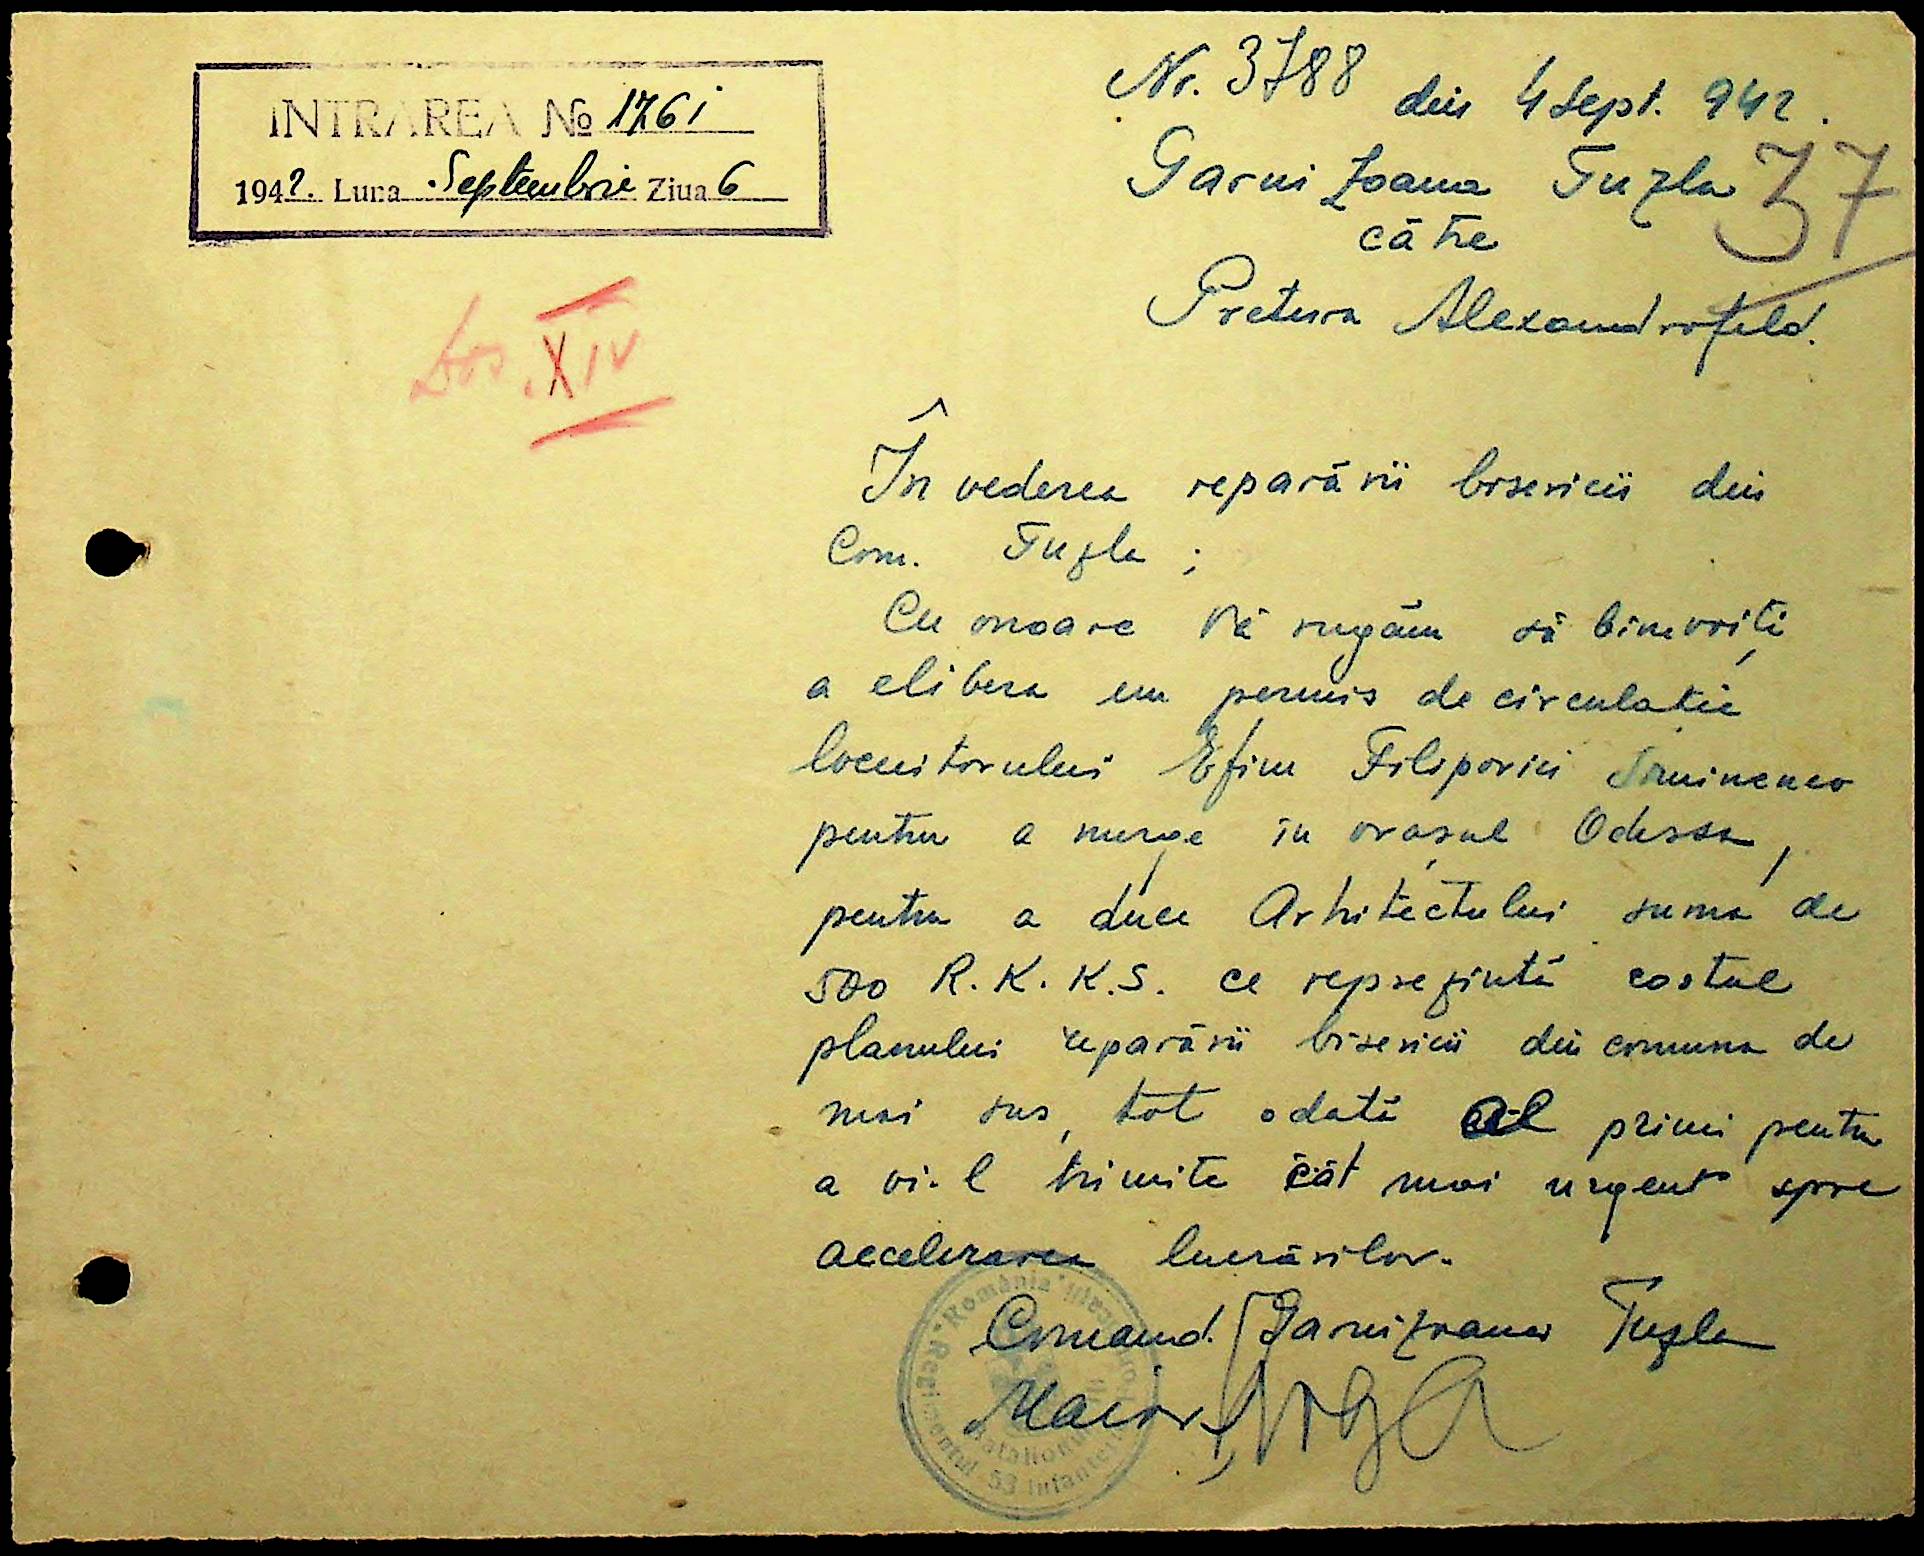 INTRAREA № 1761
1942. Luna Septembrie Ziua 6
Nr. 3788 din 4 Sept. 942.
Garnizoana Tuzla
37
către
Pretura Alexandrofeld.
Dos. XIV
În vederea reparării bisericii din
Com. Tuzla ;
Cu onoare Vă rugăm să binevoiți
a elibera un permis de circulație
locuitorului Efim Filipovici
pentru a merge în orașul Odessa,
pentru a duce Arhitectului suma de
500 R.K.K.S. ce reprezintă costul
planului reparării bisericii din comuna de
mai sus, tot odată al primi pentru
a vi-l trimite cât mai urgent spre
accelerarea lucrărilor.
Comand. Garnizoanei Tuzla
Maior
România
Regimentul 53 Infanterie
Batalion